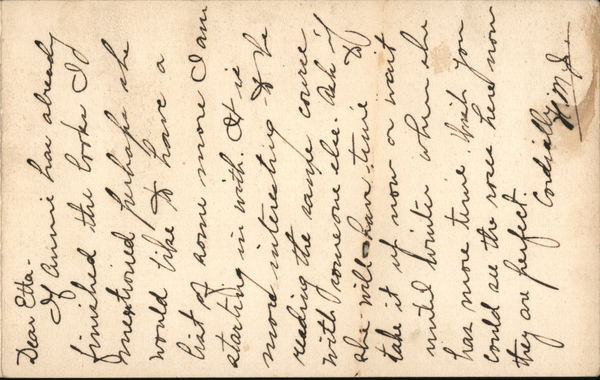 Dear Etta-
If Annie has already
finished the books I
mentioned perhaps she
would like to have a
list of some more I am
starting in with. It is
more interesting to be
reading the same course
with someone else. Ask if
she will have time to
take it up now or wait
until winter when she
has more time. Wish you
could see the roses here now
they are perfect.
Cordially
H.M.J.